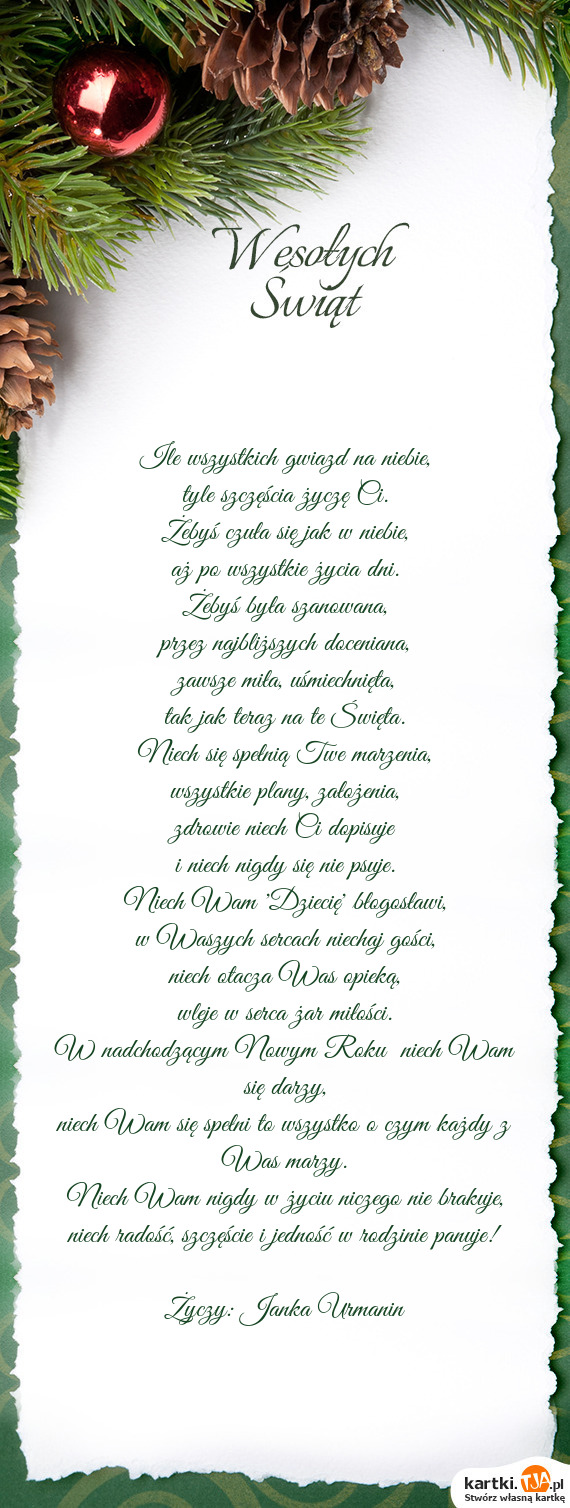 Wesołych
Świąt
Ile wszystkich gwiazd na niebie,
tyle szczęścia życzę Ci.
Żebyś czuła się jak w niebie,
aż po wszystkie życia dni.
Żebyś była szanowana,
przez najbliższych doceniana,
zawsze miła, uśmiechnięta,
tak jak teraz na te Święta.
Niech się spełnią Twe marzenia,
wszystkie plany, założenia,
zdrowie niech Ci dopisuje
i niech nigdy się nie psuje.
Niech Wam 'Dziecię' błogosławi,
w Waszych sercach niechaj gości,
niech otacza Was opieką,
wleje w serca żar miłości.
W nadchodzącym Nowym Roku niech Wam
się darzy,
niech Wam się spełni to wszystko o czym każdy z
Was marzy.
Niech Wam nigdy w życiu niczego nie brakuje,
niech radość, szczęście i jedność w rodzinie panuje!
Życzy: Janka Urmanin
kartki.TJA.pl
Stwórz własną kartkę